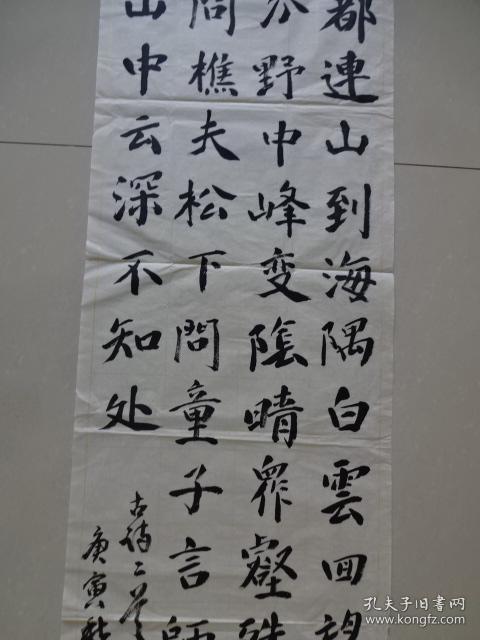 都連山到海隅白雲回望
分野中峰变陰晴眾壑殊
問樵夫松下問童子言師
山中云深不知处
古诗二首
庚寅秋
孔夫子旧书网
kongfz.com